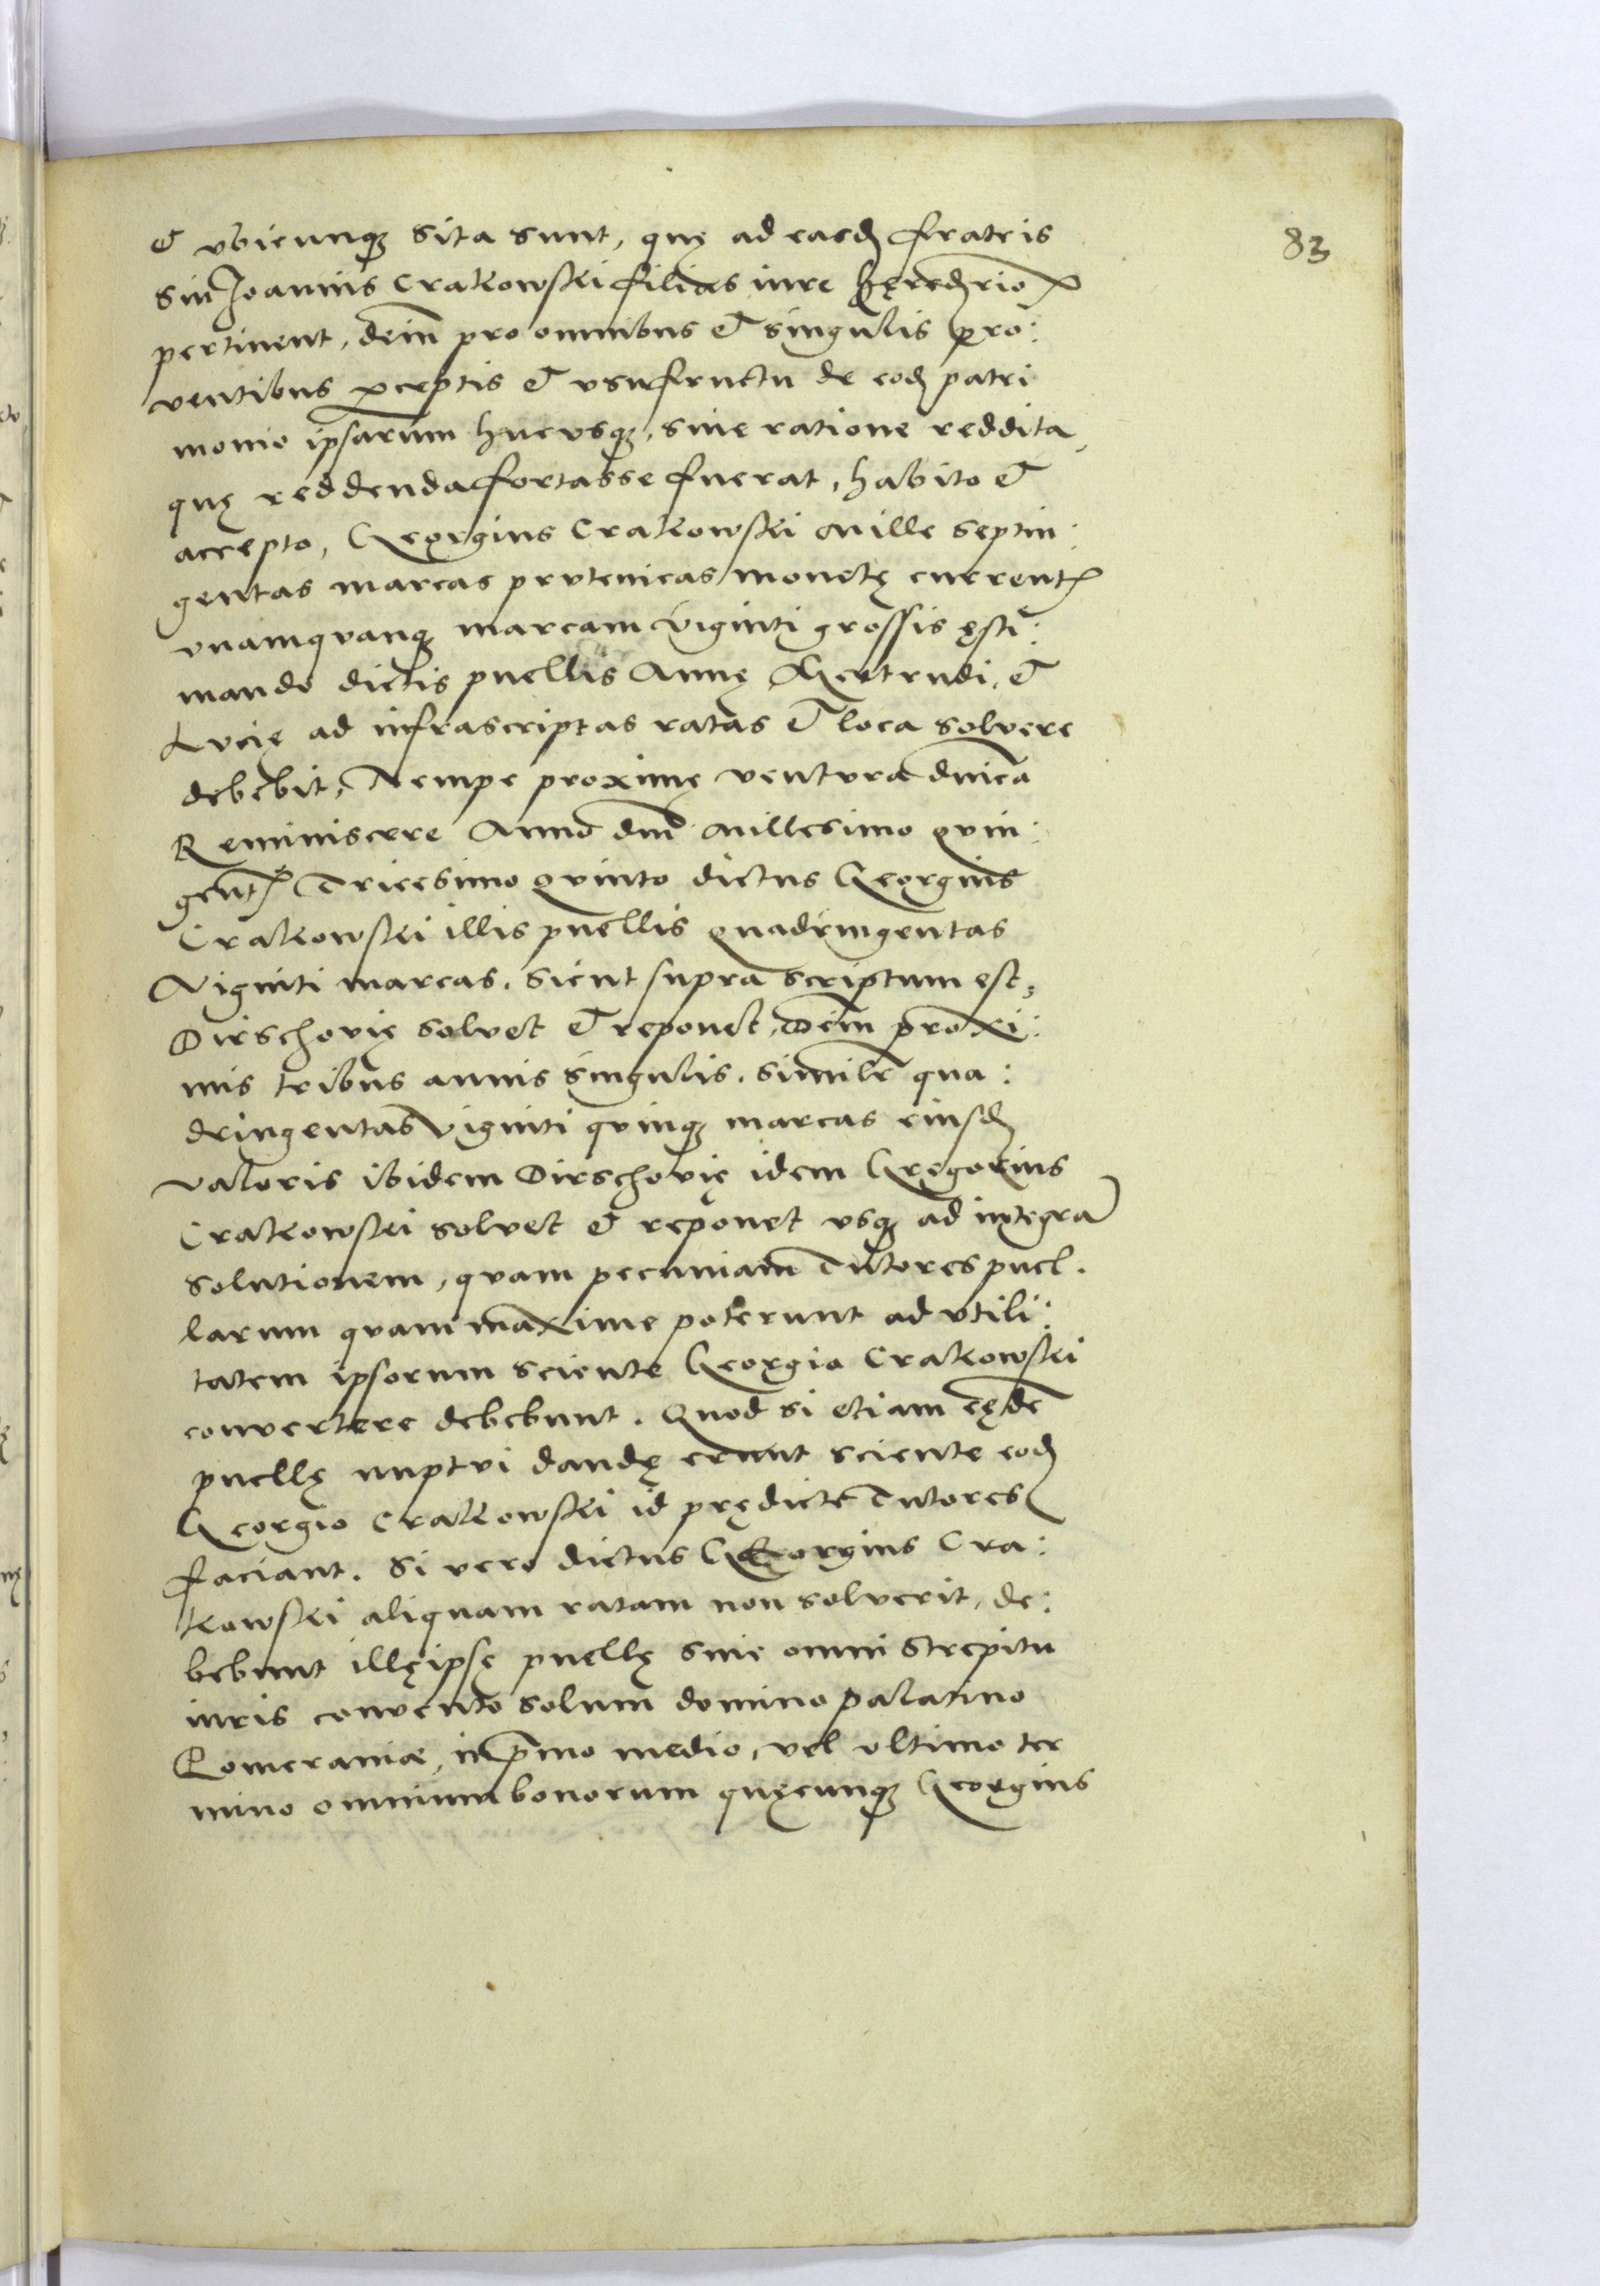 83
et vbicunq3 sita sunt, quę ad easd fratris
sui Joannis Crakowskei filias iure hęredrio
pertinent, dein pro omnibus et singulis pro:
ventibus pceptis et vsufructu de eod patri
monio ipsarum hucusq3, sine ratione reddita,
quę reddenda fortasse fuerat, habito et
accepto, Georgius Crakowskei mille septin:
gentas marcas prutenicas monetę current
vnamquanq3 marcam viginti grossis ęsti:
mando dictis puellis Annę Gertrudi, et
Lucię ad infrascriptas ratas et loca soluere
debebit, Nempe proximę ventura dnica
Reminiscere Anno dni millesimo quin:
gent Tricesimo quinto dictus Georgius
Crakowskei illis puellis quadringentas
Viginti marcas, sicut supra scriptum est,
Dirschovię solvet et reponet, Dein proxi:
mis tribus annis singulis, similr qua:
dringentas viginti quinq3 marcas eiusd
valoris ibidem Dirschovię idem Gregorius
Crakowskei solvet et reponet vsq3 ad integra
solutionem, quam pecuniam Tutores puel:
larum quam maxime poterunt ad vtili:
tatem ipsorum sciente Georgio Crakowskei
convertere debebunt. Quod si etiam eędē
puellę nuptvi dandę erunt sciente eod
Georgio Crakowskei id prędicte Tutores
faciant. Si vero dictus Georgius Cra:
kowskei aliquam ratam non solverit, de:
bebunt illę ipsę puellę sine omni strepitu
iuris convento solum domino palatino
Pomeraniæ, in pmo medio, vel vltimo ter
mino omnium bonorum quęcunq3 Georgius